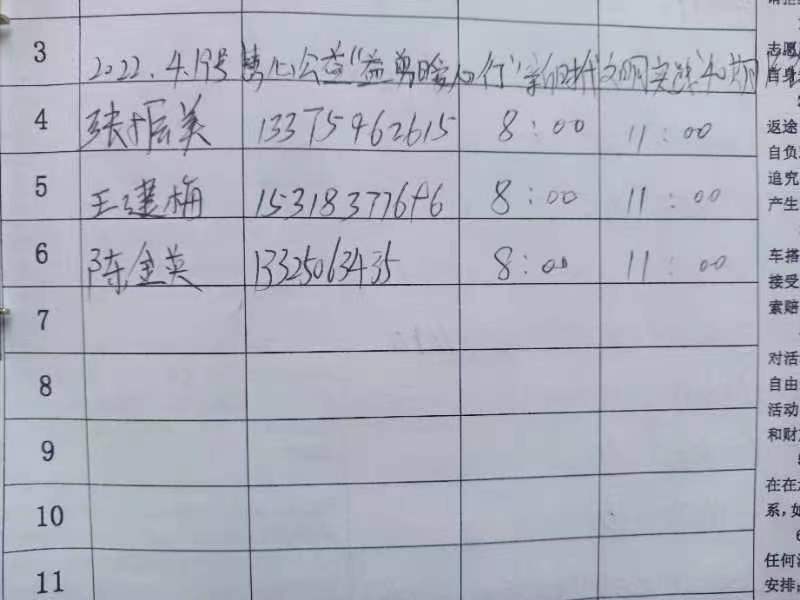 3 2022.4.19号慧心公益"益剪暖心行"新时代文明实践40期
4 张振美 13375462615 8:00 11:00
5 王建梅 15318377686 8:00 11:00
6 陈金英 13325063435 8:00 11:00
7
8
9
10
11
志愿
自身
返途
自负
追究
产生
车搭
接受
索赔
对活
自由
活动
和财
在在
系,如
6
任何
安排,